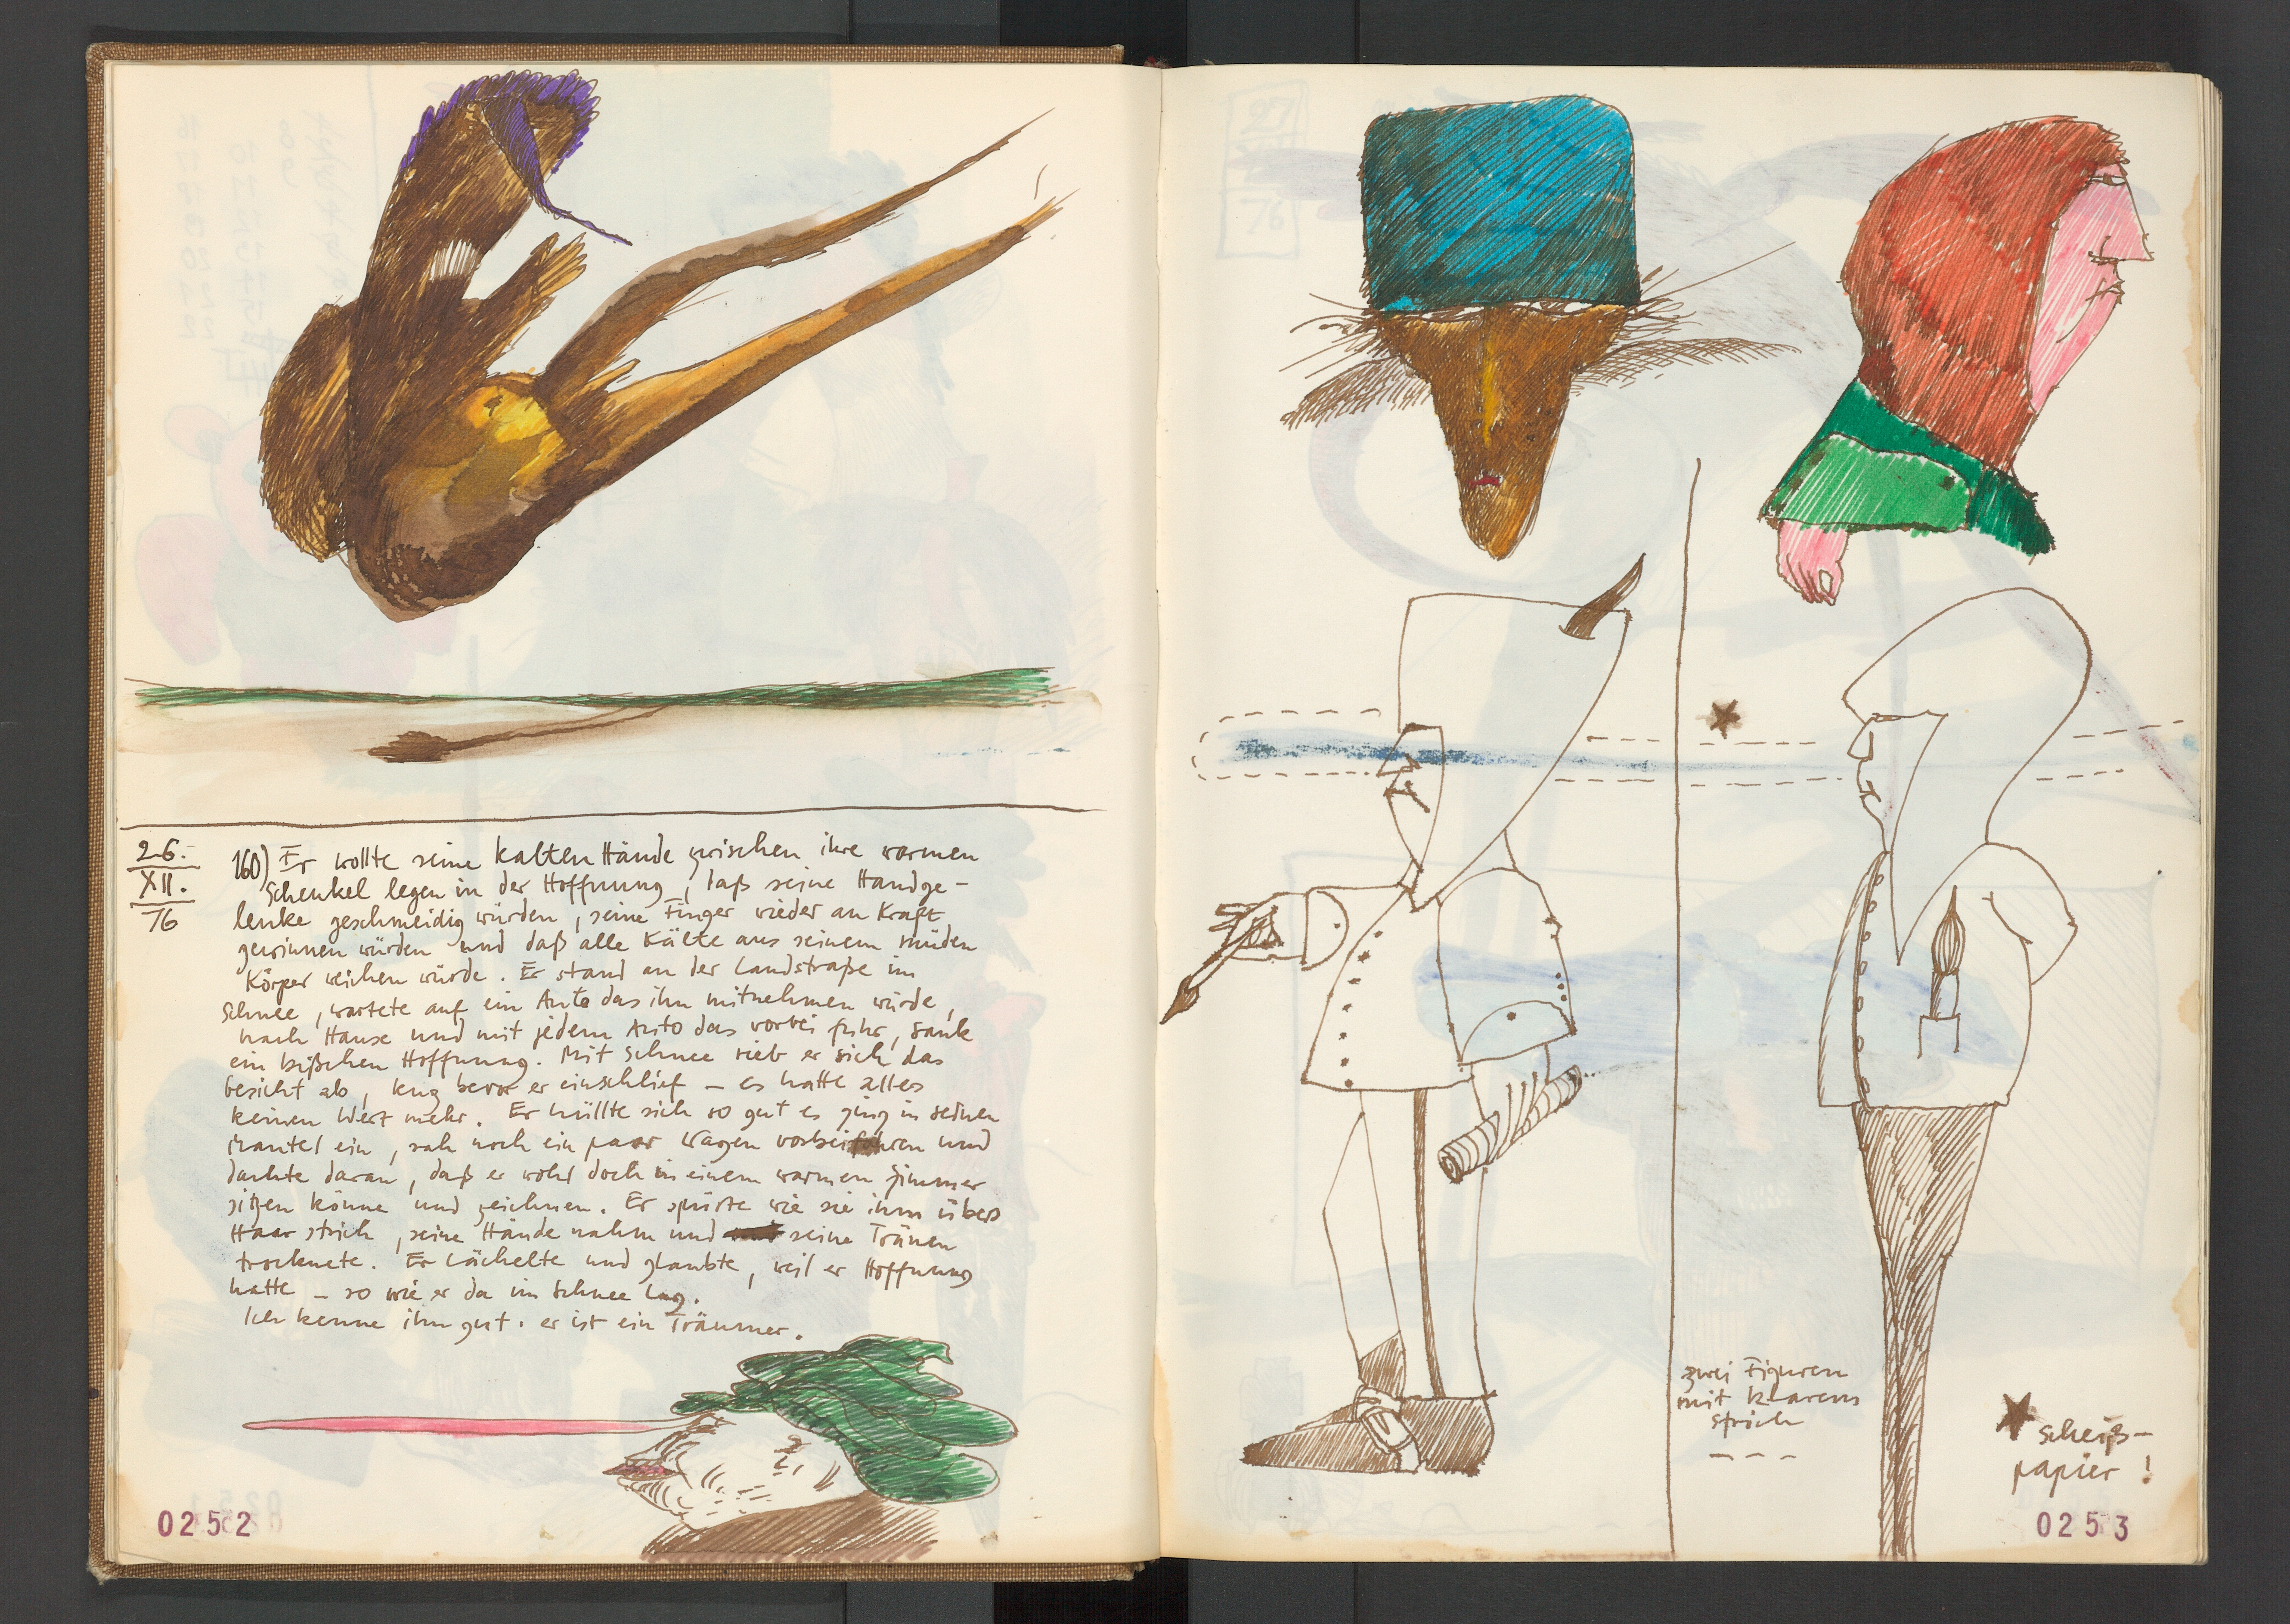 26.
XII.
76
160) Er wollte seine kalten Hände zwischen ihre warmen
Schenkel legen in der Hoffnung, daß seine Handge-
lenke geschmeidig würden, seine Finger wieder an Kraft
gewinnen würden und daß alle Kälte aus seinem müden
Körper weichen würde. Er stand an der Landstraße im
Schnee, wartete auf ein Auto das ihn mitnehmen würde,
nach Hause und mit jedem Auto das vorbei fuhr, sank
ein bißchen Hoffnung. Mit Schnee rieb er sich das
Gesicht ab, kurz bevor er einschlief – es hatte alles
keinen Wert mehr. Er hüllte sich so gut es ging in seinen
Mantel ein, sah noch ein paar Wagen vorbeifahren und
dachte daran, daß er wohl doch in einem warmen Zimmer
sitzen könne und zeichnen. Er spürte wie sie ihm übers
Haar strich, seine Hände nahm und seine Tränen
trocknete. Er lächelte und glaubte, weil er Hoffnung
hatte – so wie er da im Schnee lag.
Ich kenne ihn gut. er ist ein Träumer.
0252
zwei Figuren
mit klarem
Strich
scheiß-
papier!
0253